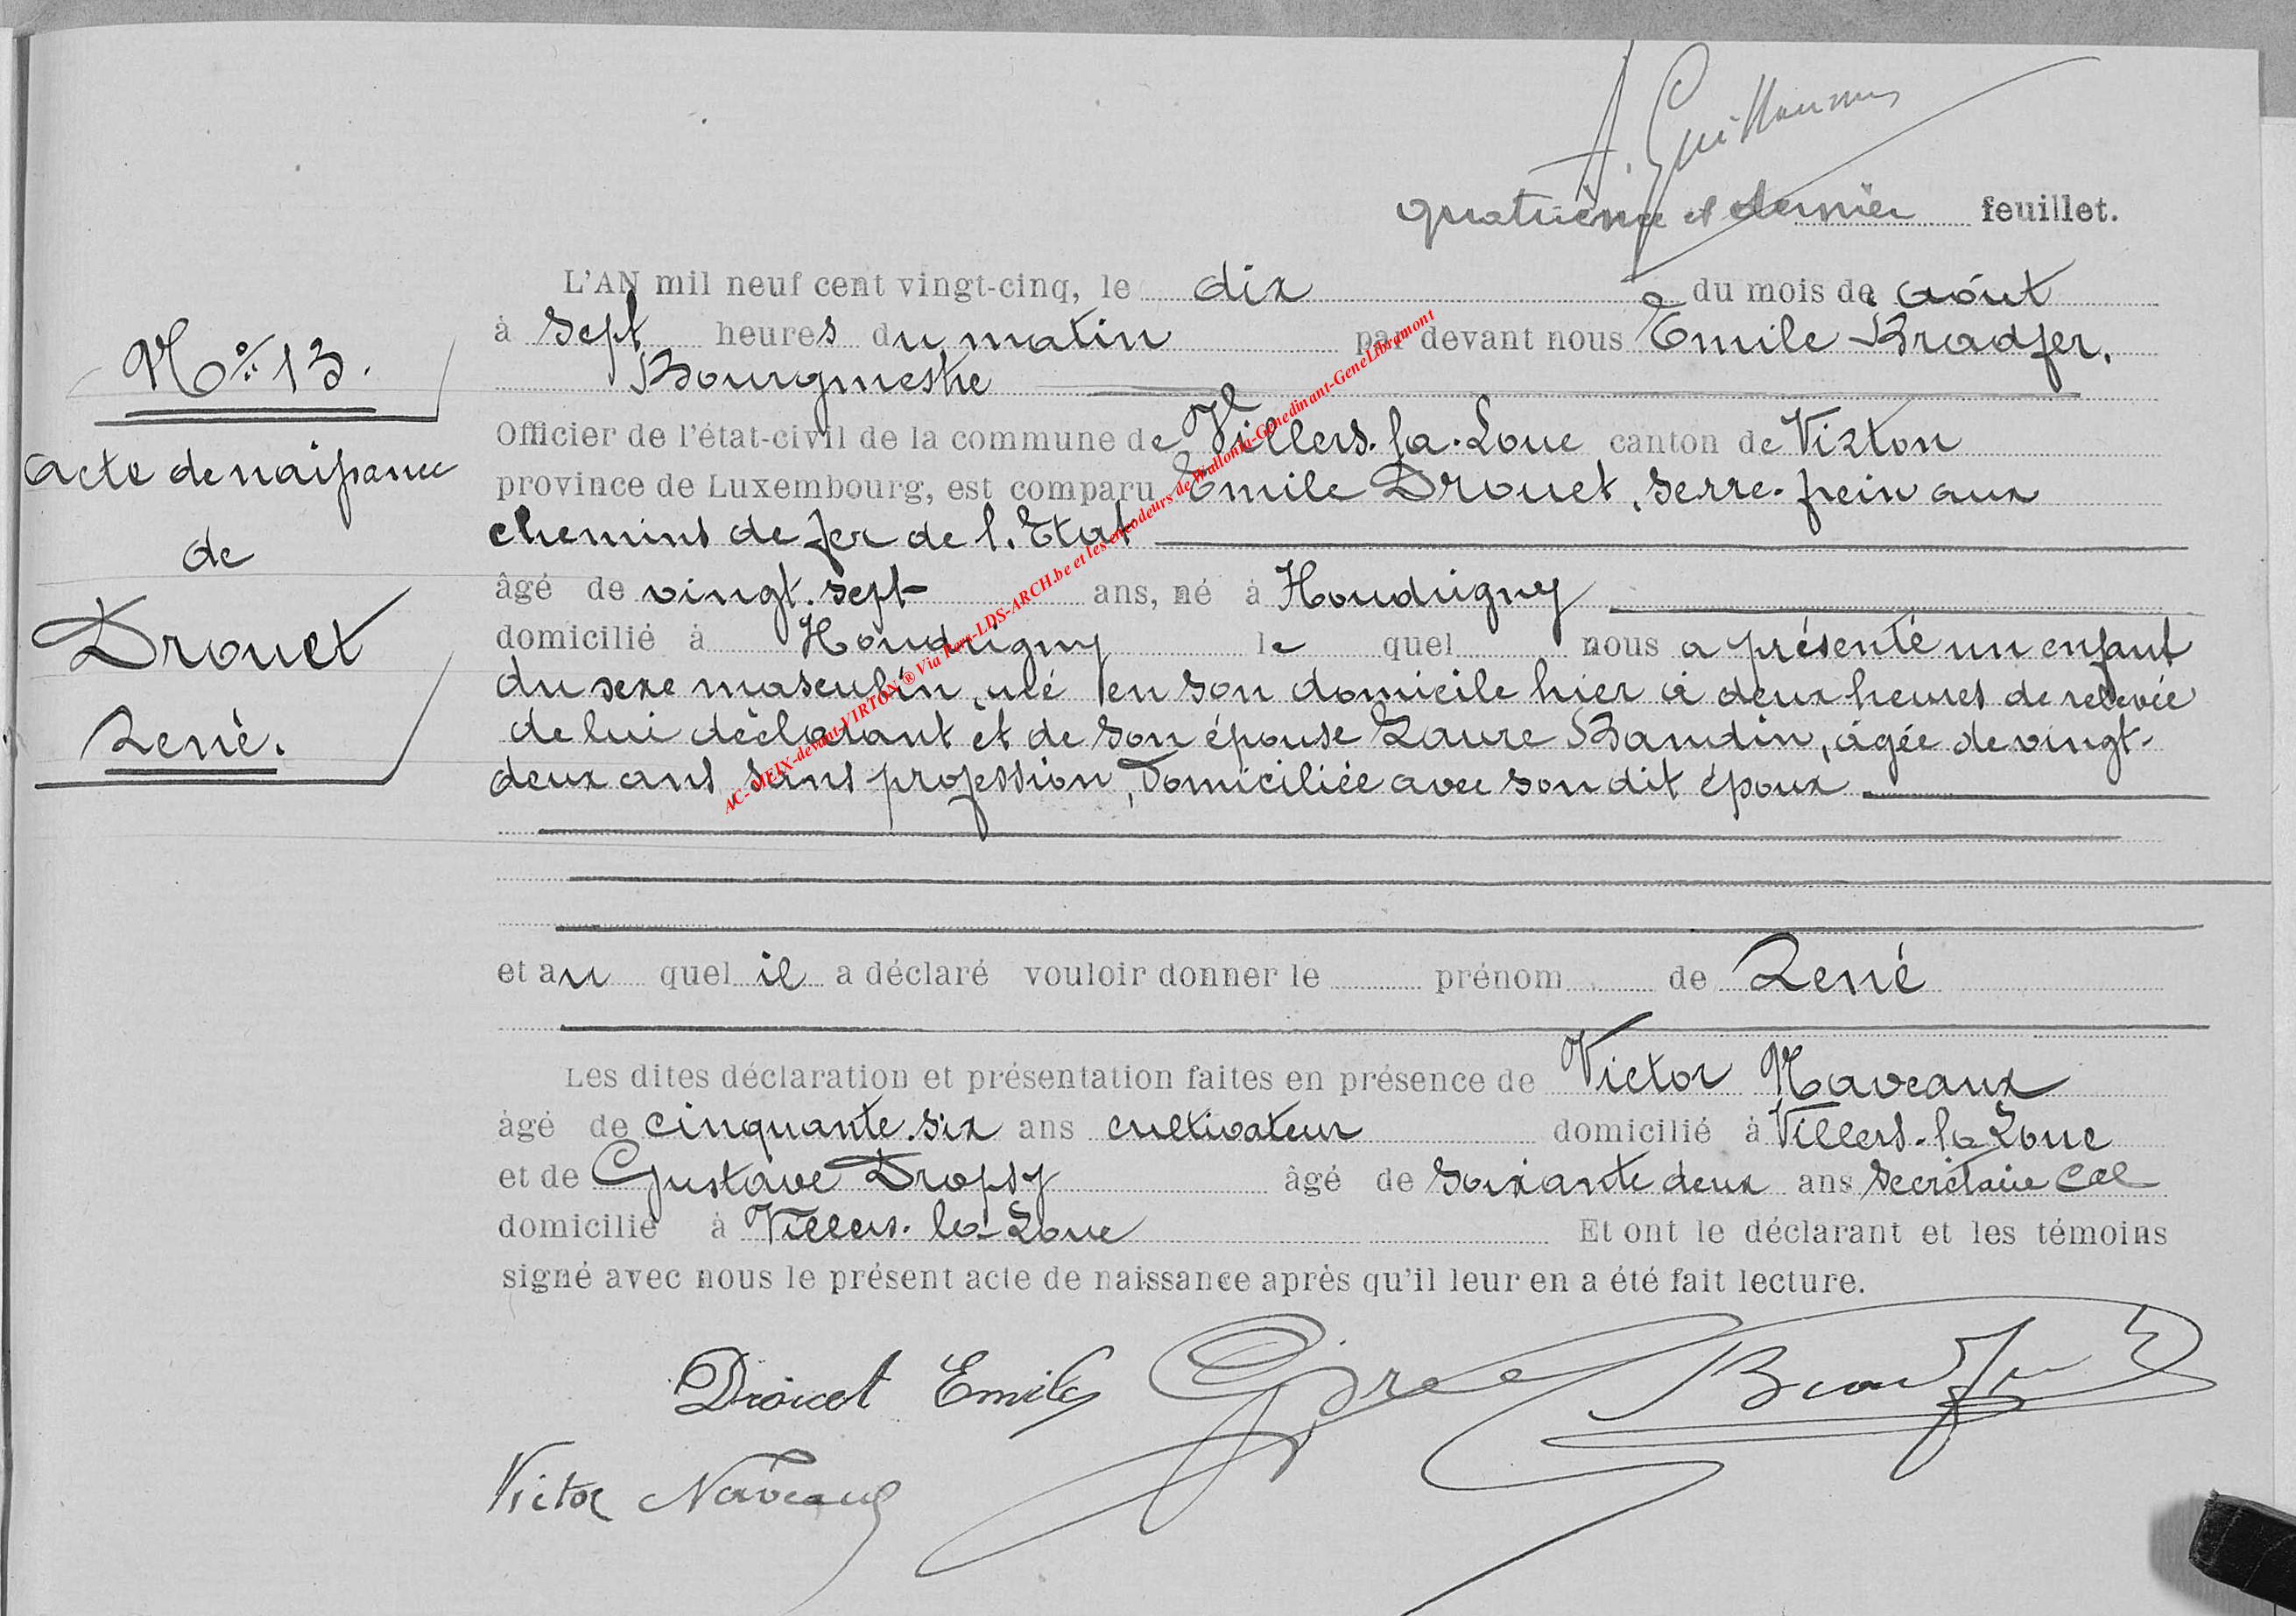 A. Guillaume
quatrième et dernier feuillet.
L'AN mil neuf cent vingt-cinq, le dix du mois de août
à sept heures du matin par devant nous Emile Bradfer,
Bourgmestre
Officier de l'état-civil de la commune de Villers-la-Loue canton de Virton
province de Luxembourg, est comparu Emile Drouet, serre-frein aux
chemins de fer de l'Etat
âgé de vingt-sept ans, né à Houdrigny
domicilié à Houdrigny le quel nous a présenté un enfant
du sexe masculin, né en son domicile hier à deux heures de relevée
de lui déclarant et de son épouse Laure Baudin, âgée de vingt-
deux ans sans profession, domiciliée avec son dit époux
et au quel il a déclaré vouloir donner le prénom de René
Les dites déclaration et présentation faites en présence de Victor Naveaux
âgé de cinquante-six ans cultivateur domicilié à Villers-la-Loue
et de Gustave Dropsy âgé de soixante deux ans secrétaire Cal
domicilié à Villers-la-Loue Et ont le déclarant et les témoins
signé avec nous le présent acte de naissance après qu'il leur en a été fait lecture.
Drouet Emile Bradfer
Victor Naveaux
No 13.
Acte de naissance
de
Drouet
René.
AC-MEIX-devant-VIRTON ® Via Pers-LDS-ARCH.be et les encodeurs de Wallonia-Genedinant-GeneLibramont